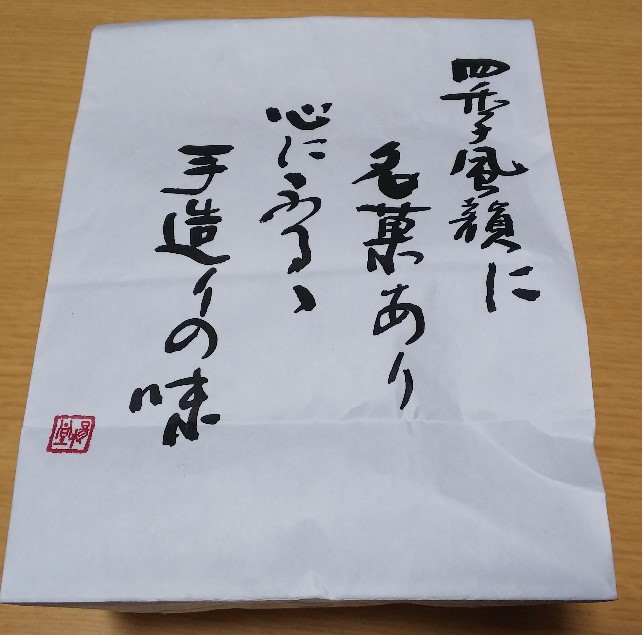 四季風韻に
名菓あり
心にふるゝ
手造りの味